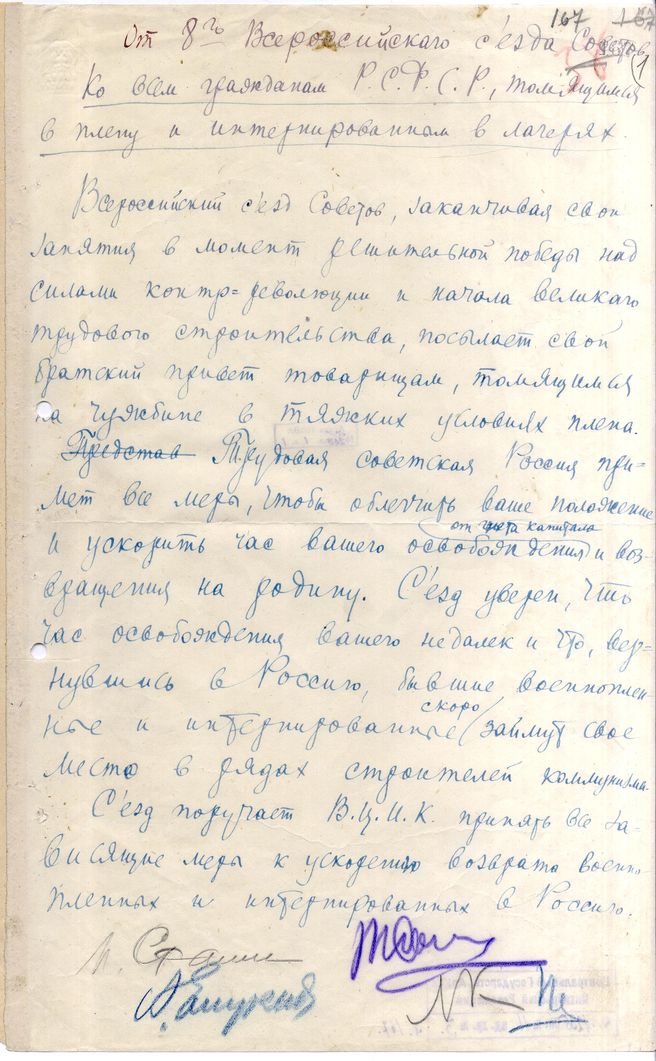 167 167
1
От 8го Всероссийскаго с'езда Советов
Ко всем гражданам Р.С.Ф.С.Р., томящимся
в плену и интернированным в лагерях.
Всероссийский с'езд Советов, заканчивая свои
занятия в момент решительной победы над
силами контр=революции и начала великаго
трудового строительства, посылает свой
братский привет товарищам, томящимся
на чужбине в тяжких условиях плена.
Представ Трудовая советская Россия при-
мет все меры, чтобы облегчить ваше положение
от капитала
и ускорить час вашего освобождения и воз-
вращения на родину. С'езд уверен, что
час освобождения вашего недалек и что, вер-
нувшись в Россию, бывшие военноплен-
скоро
ные и интернированные займут свое
место в рядах строителей коммунизма.
С'езд поручает В.Ц.И.К. принять все за-
висящие меры к ускорению возврата военно-
пленных и интернированных в Россию.
И. Сталин